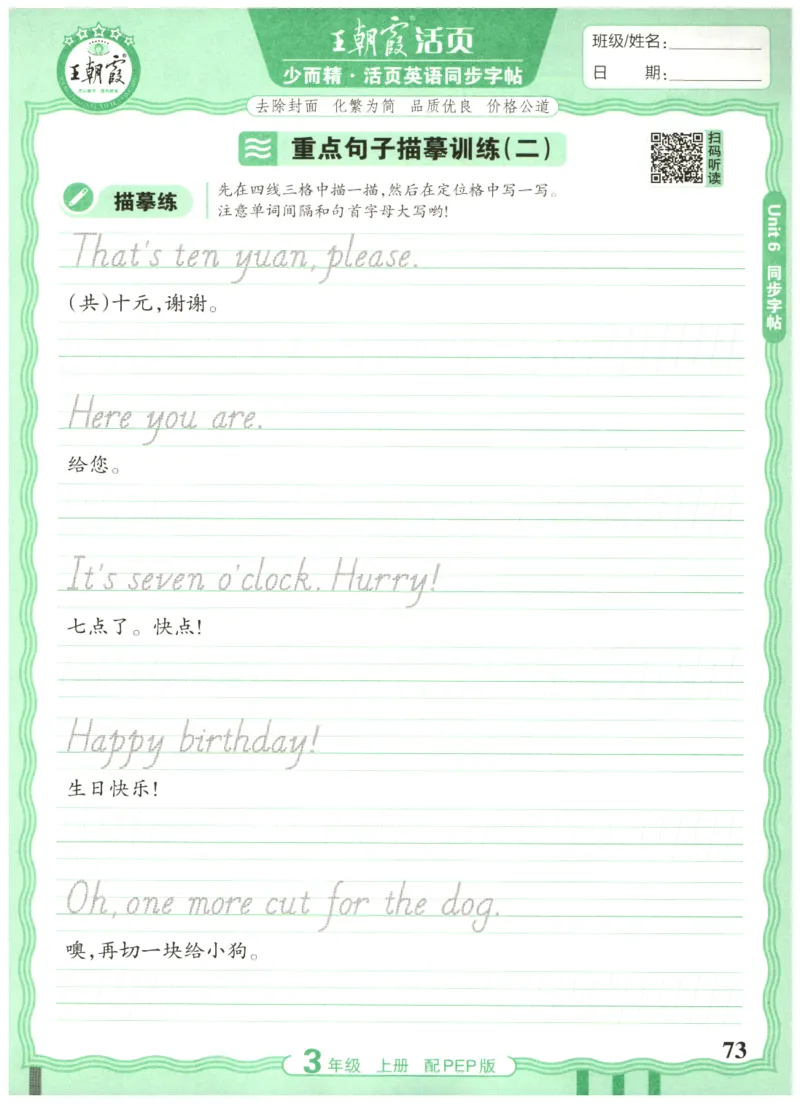 王朝霞
王朝霞®活页
少而精·活页英语同步字帖
班级/姓名:
日 期:
去除封面 化繁为简 品质优良 价格公道
重点句子描摹训练(二)
扫码听读
描摹练
先在四线三格中描一描,然后在定位格中写一写。
注意单词间隔和句首字母大写哟!
Unit 6 同步字帖
That's ten yuan, please.
(共)十元,谢谢。
Here you are.
给您。
It's seven o'clock. Hurry!
七点了。快点!
Happy birthday!
生日快乐!
Oh, one more cut for the dog.
噢,再切一块给小狗。
73
3年级 上册 配PEP版